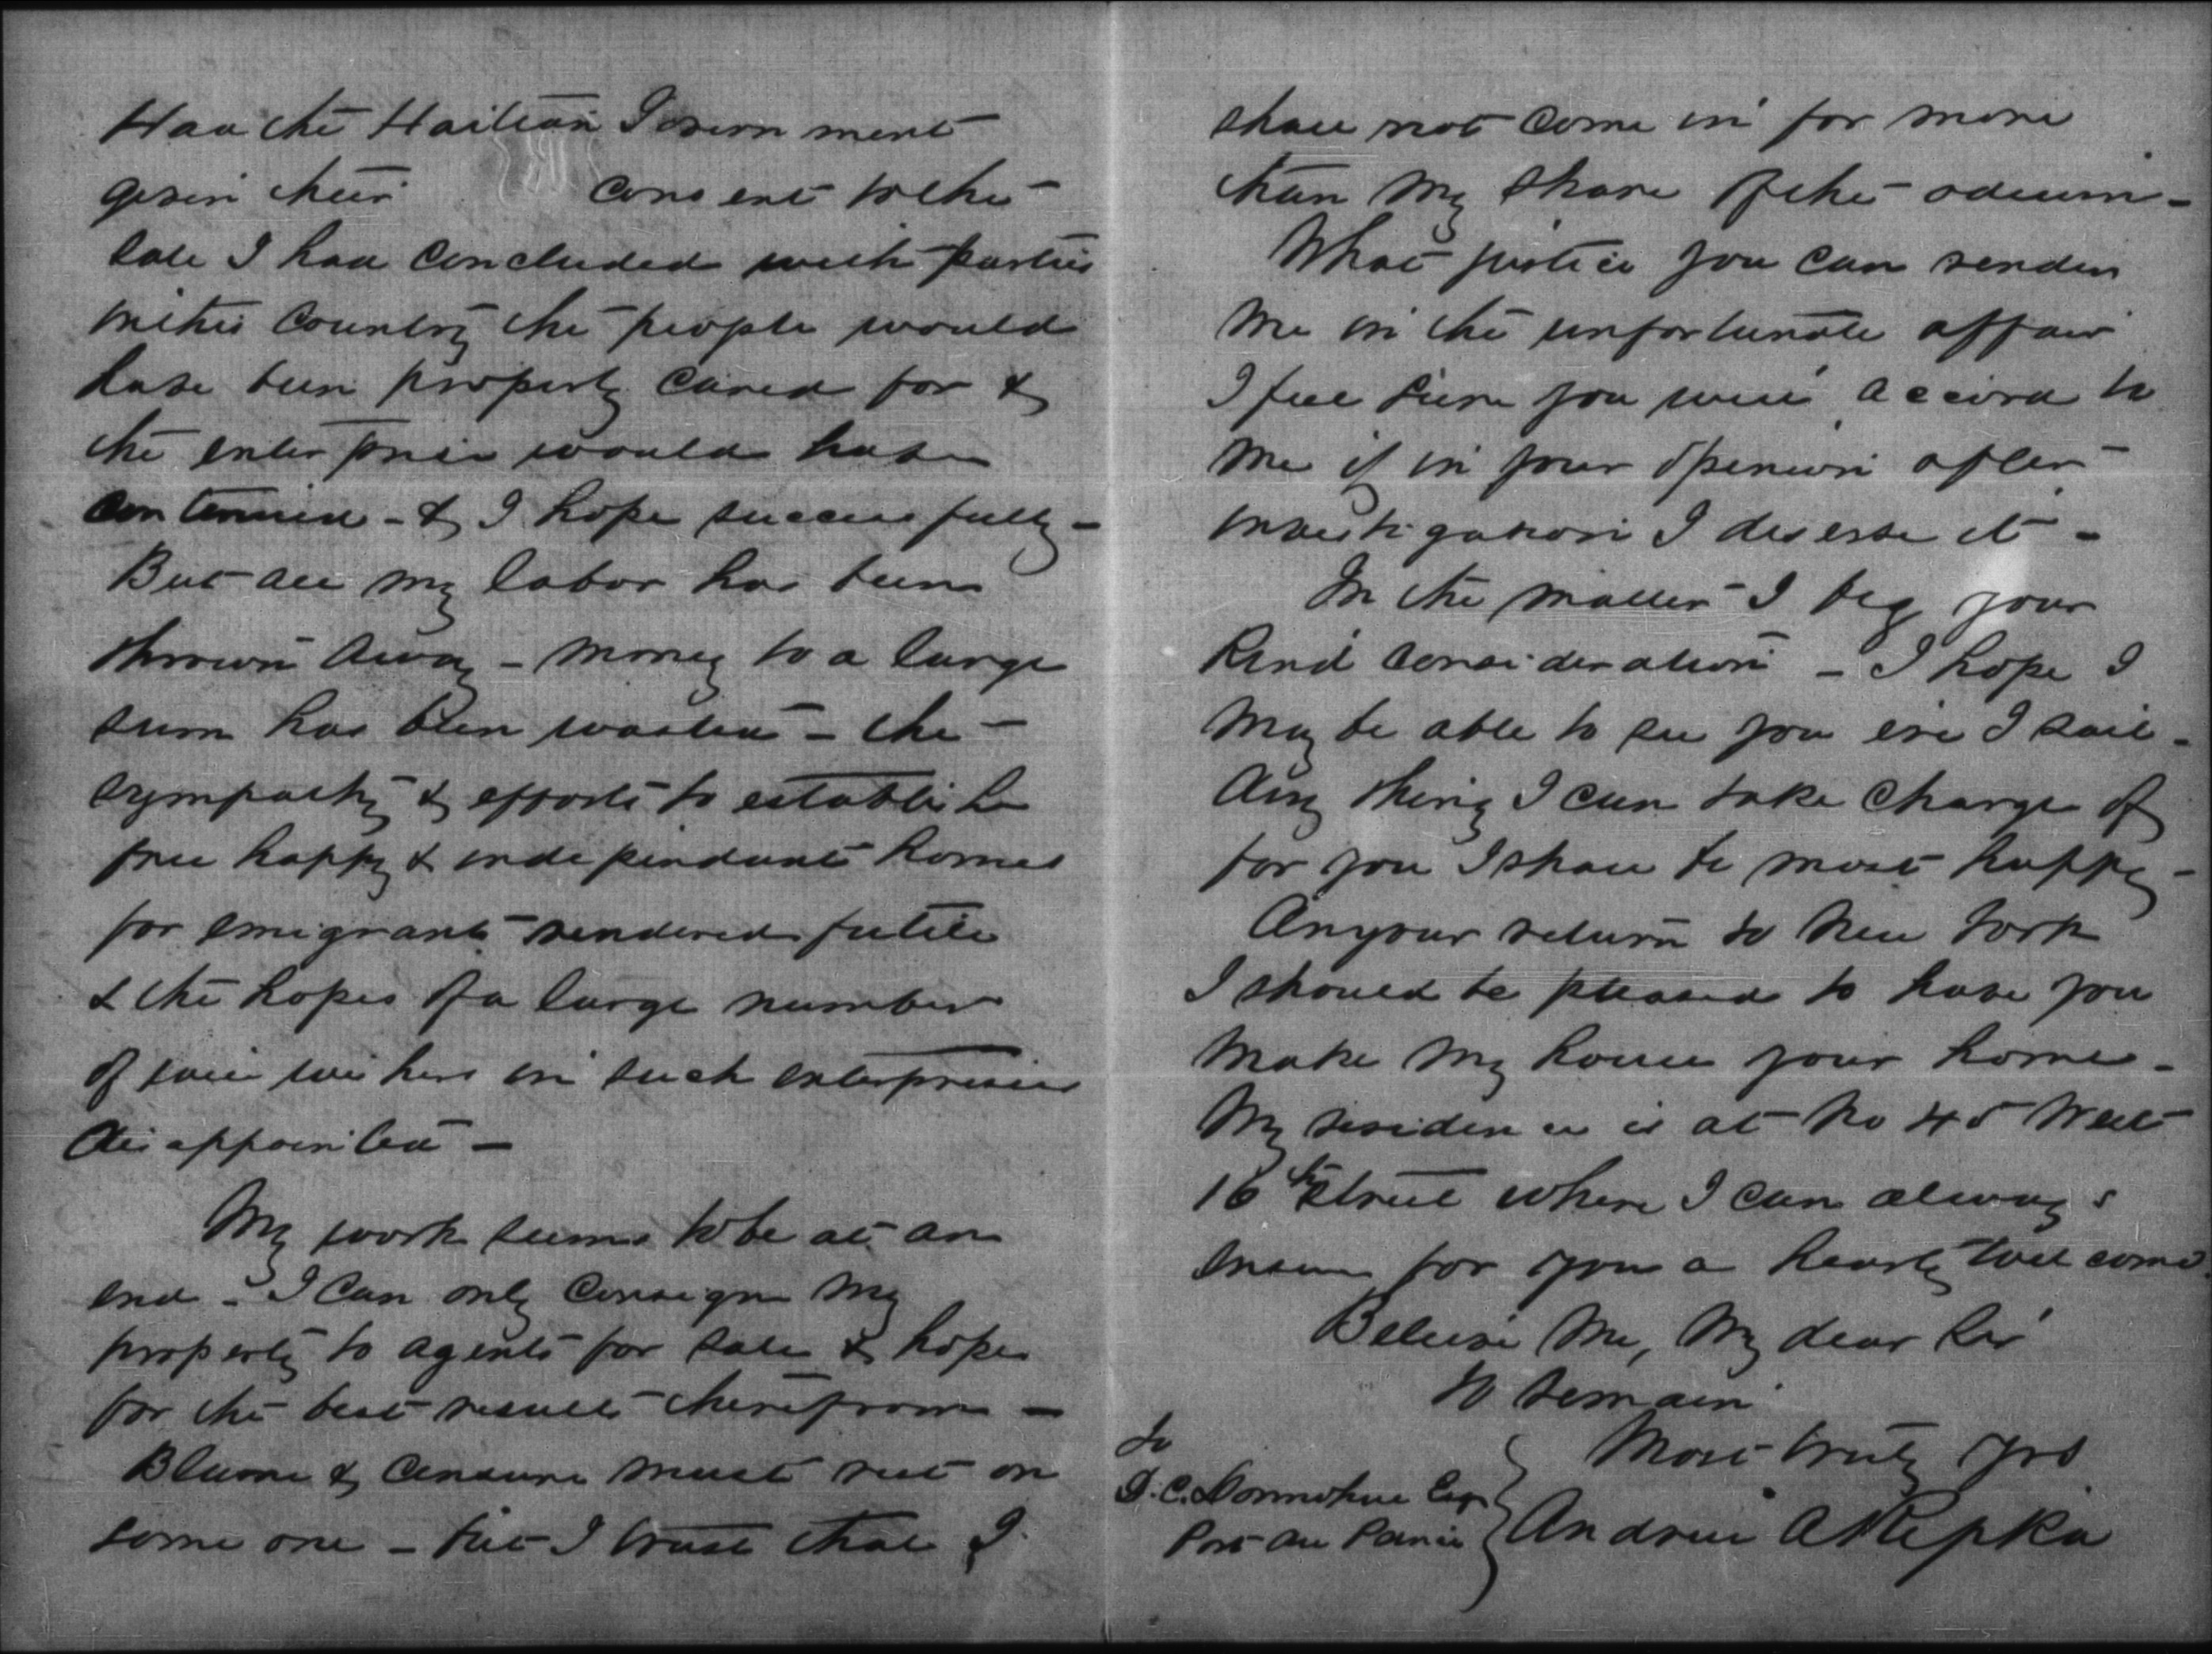 Had the Haitian Government
given their consent to the
sale I had concluded with parties
in this Country the people would
have been properly cared for &
the enterprise would have
continued - & I hope successfully -
But all my labor has been
thrown away - money to a large
sum has been wasted - the
sympathy & efforts to establish
free happy & independant homes
for emigrants rendered futile
& the hopes of a large number
of well wishers in such enterprises
disappointed -
My work seems to be at an
end - I can only consign my
property to agents for sale & hope
for the best results therefrom -
Blame & censure must rest on
some one - but I trust that I
shall not come in for more
than my share of the odium -
What justice you can render
me in the unfortunate affair
I feel sure you will accord to
me if in your opinion after
investigation I deserve it -
In the matter I beg your
kind consideration - I hope I
may be able to see you ere I sail -
Any thing I can take charge of
for you I shall be most happy -
On your return to New York
I should be pleased to have you
make my house your home -
My residence is at No 45 West
16th Street where I can always
insure for you a hearty welcome
Believe me, My dear Sir
to remain
Most truly yrs
Andrew A Kepka
To
D. C. Donnohue Esq
Port au Prince